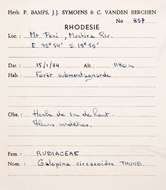 Herb. P. BAMPS, J.J. SYMOENS & C. VANDEN BERGHEN
No 857
RHODESIE
Loc :
E 32°54' S 18°55'
Dat : 15/1/74 Alt :
Hab : Forêt submontagnarde
Obs : Herbe de 1m de haut.
Fleurs verdâtres.
Fam : RUBIACEAE
Nom : Galopina circaeoides THUNB.